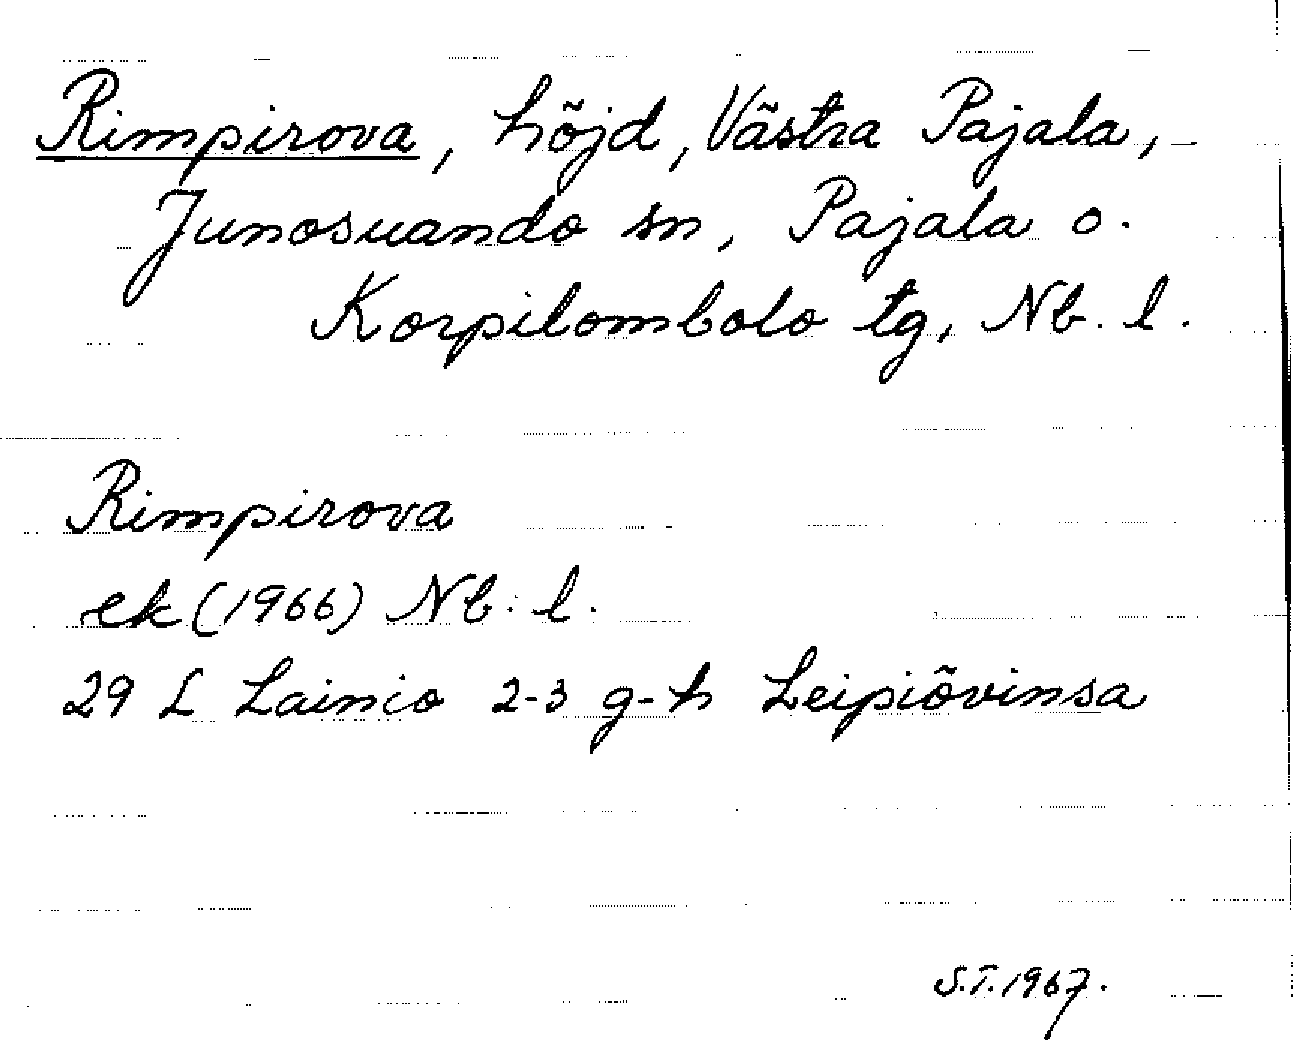 Rimpirova, höjd, Västra Pajala,
Junosuando sn, Pajala o.
Korpilombolo tg, Nb. l.
Rimpirova
ek (1966) Nb. l.
29 L Lainio 2-3 g-h Leipiövinsa
S.T. 1967.